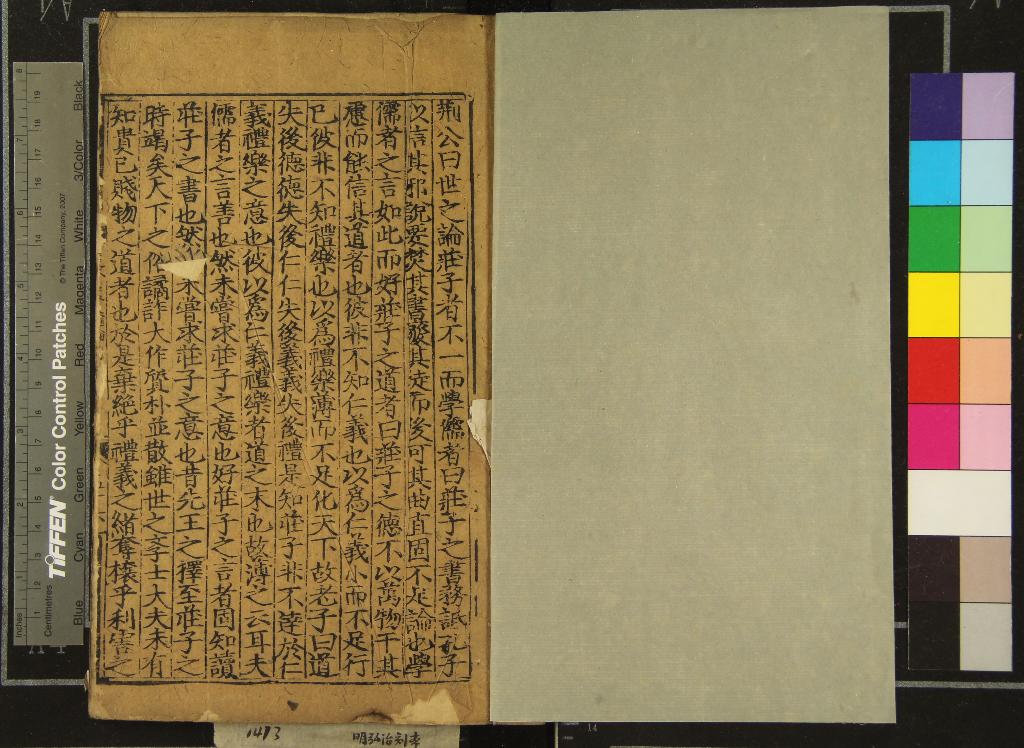 荆公曰世之論莊子者不一而學儒者曰莊子之書務詆孔子
以言其邪說要焚其書廢其徒而後可其曲直固不足論也學
儒者之言如此而好莊子之道者曰莊子之德不以萬物干其
慮而能信其道者也彼非不知仁義也以爲仁義小而不足行
已彼非不知禮樂也以爲禮樂薄而不足化天下故老子曰道
失後德德失後仁仁失後義義失後禮是知莊子非不達於仁
義禮樂之意也彼以爲仁義禮樂者道之末也故薄之云耳夫
儒者之言善也然未嘗求莊子之意也好莊子之言者固知讀
莊子之書也然亦未嘗求莊子之意也昔先王之擇至莊子之
時竭矣天下之俗譎詐大作質朴並散雖世之孝士大夫未有
知貴已賤物之道者也於是棄絶乎禮義之緒奪攘乎利害之
1413
明弘治刻本
TIFFEN Color Control Patches
© The Tiffen Company, 2007
Inches
Centimetres
Blue Cyan Green Yellow Red Magenta White 3/Color Black